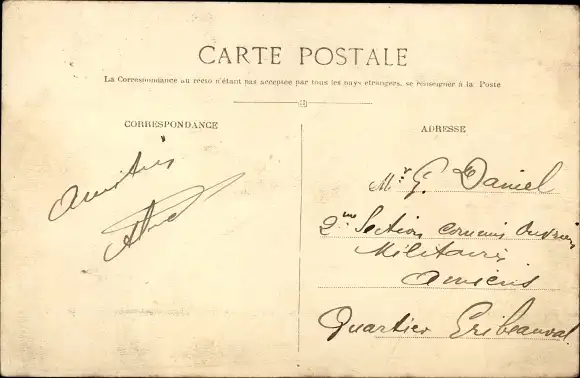 CARTE POSTALE
La Correspondance au recto n'étant pas acceptée par tous les pays étrangers, se renseigner à la Poste
CORRESPONDANCE
ADRESSE
Amitiés
Mr G. Daniel
2me Section commis Ouvriers
Militaires
Amiens
Quartier Gribeauval